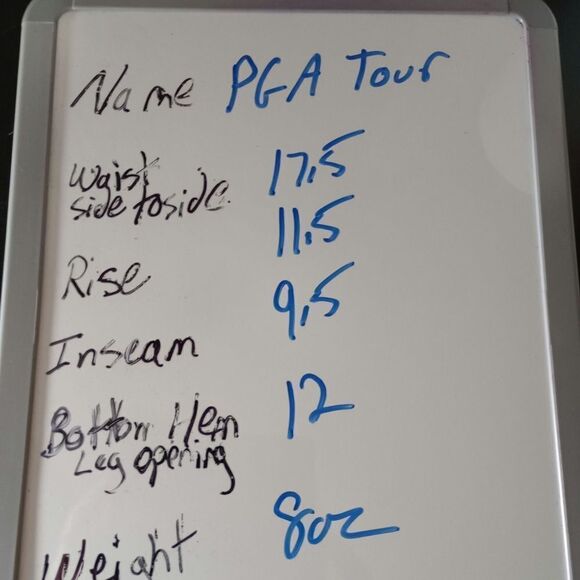 Name PGA Tour
Waist 17,5
side to side
Rise 11,5
Inseam 9,5
Bottom Hem 12
Leg opening
Weight 8oz